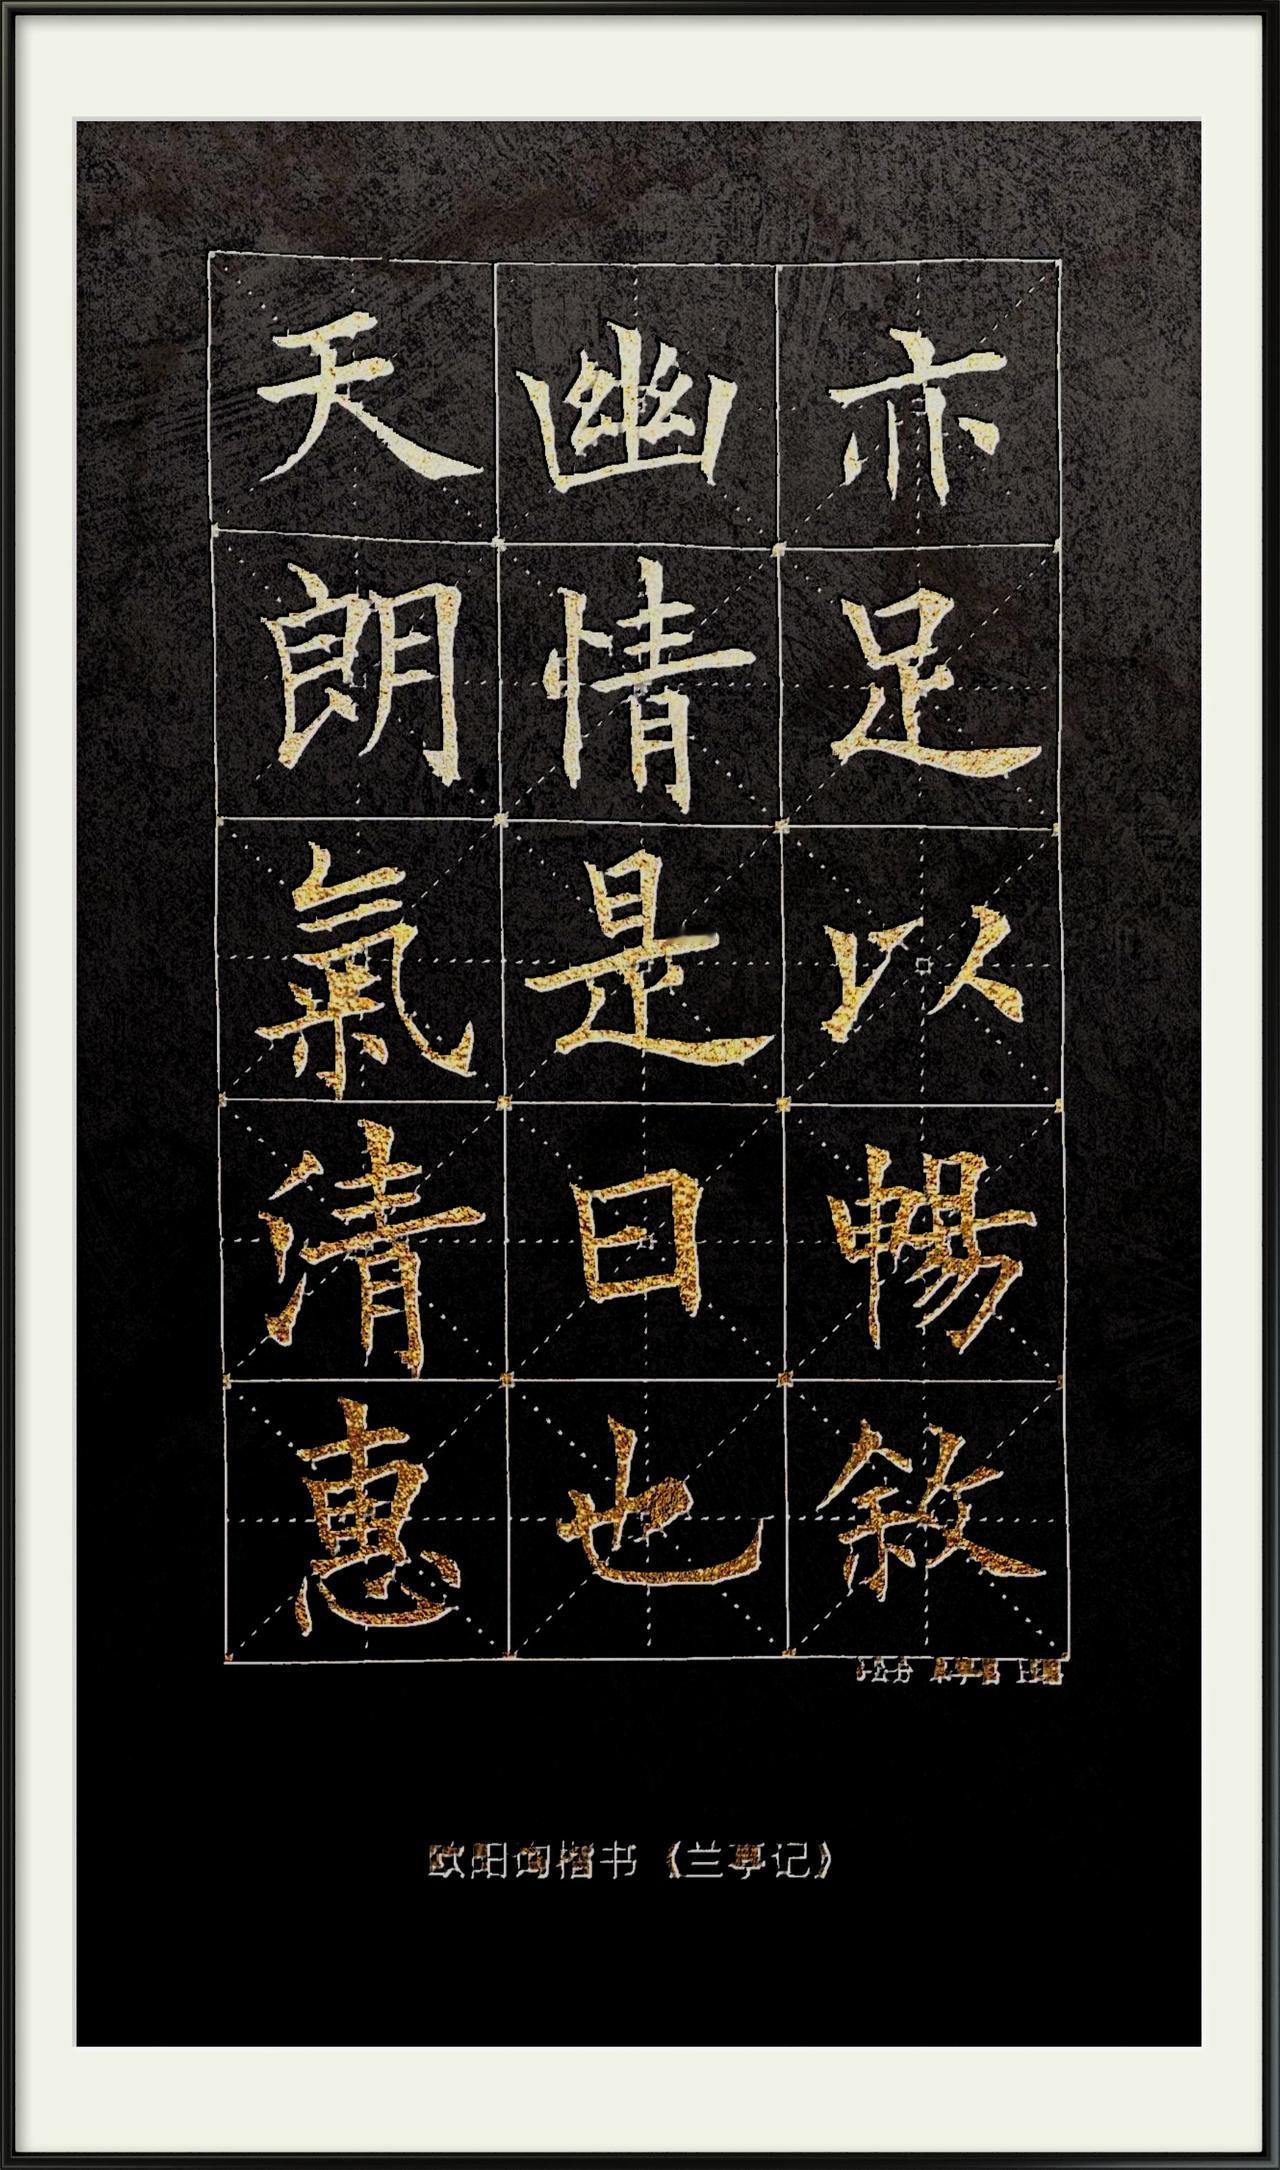 亦足以暢敘
幽情是日也
天朗氣清惠
欧阳询楷书《兰亭记》